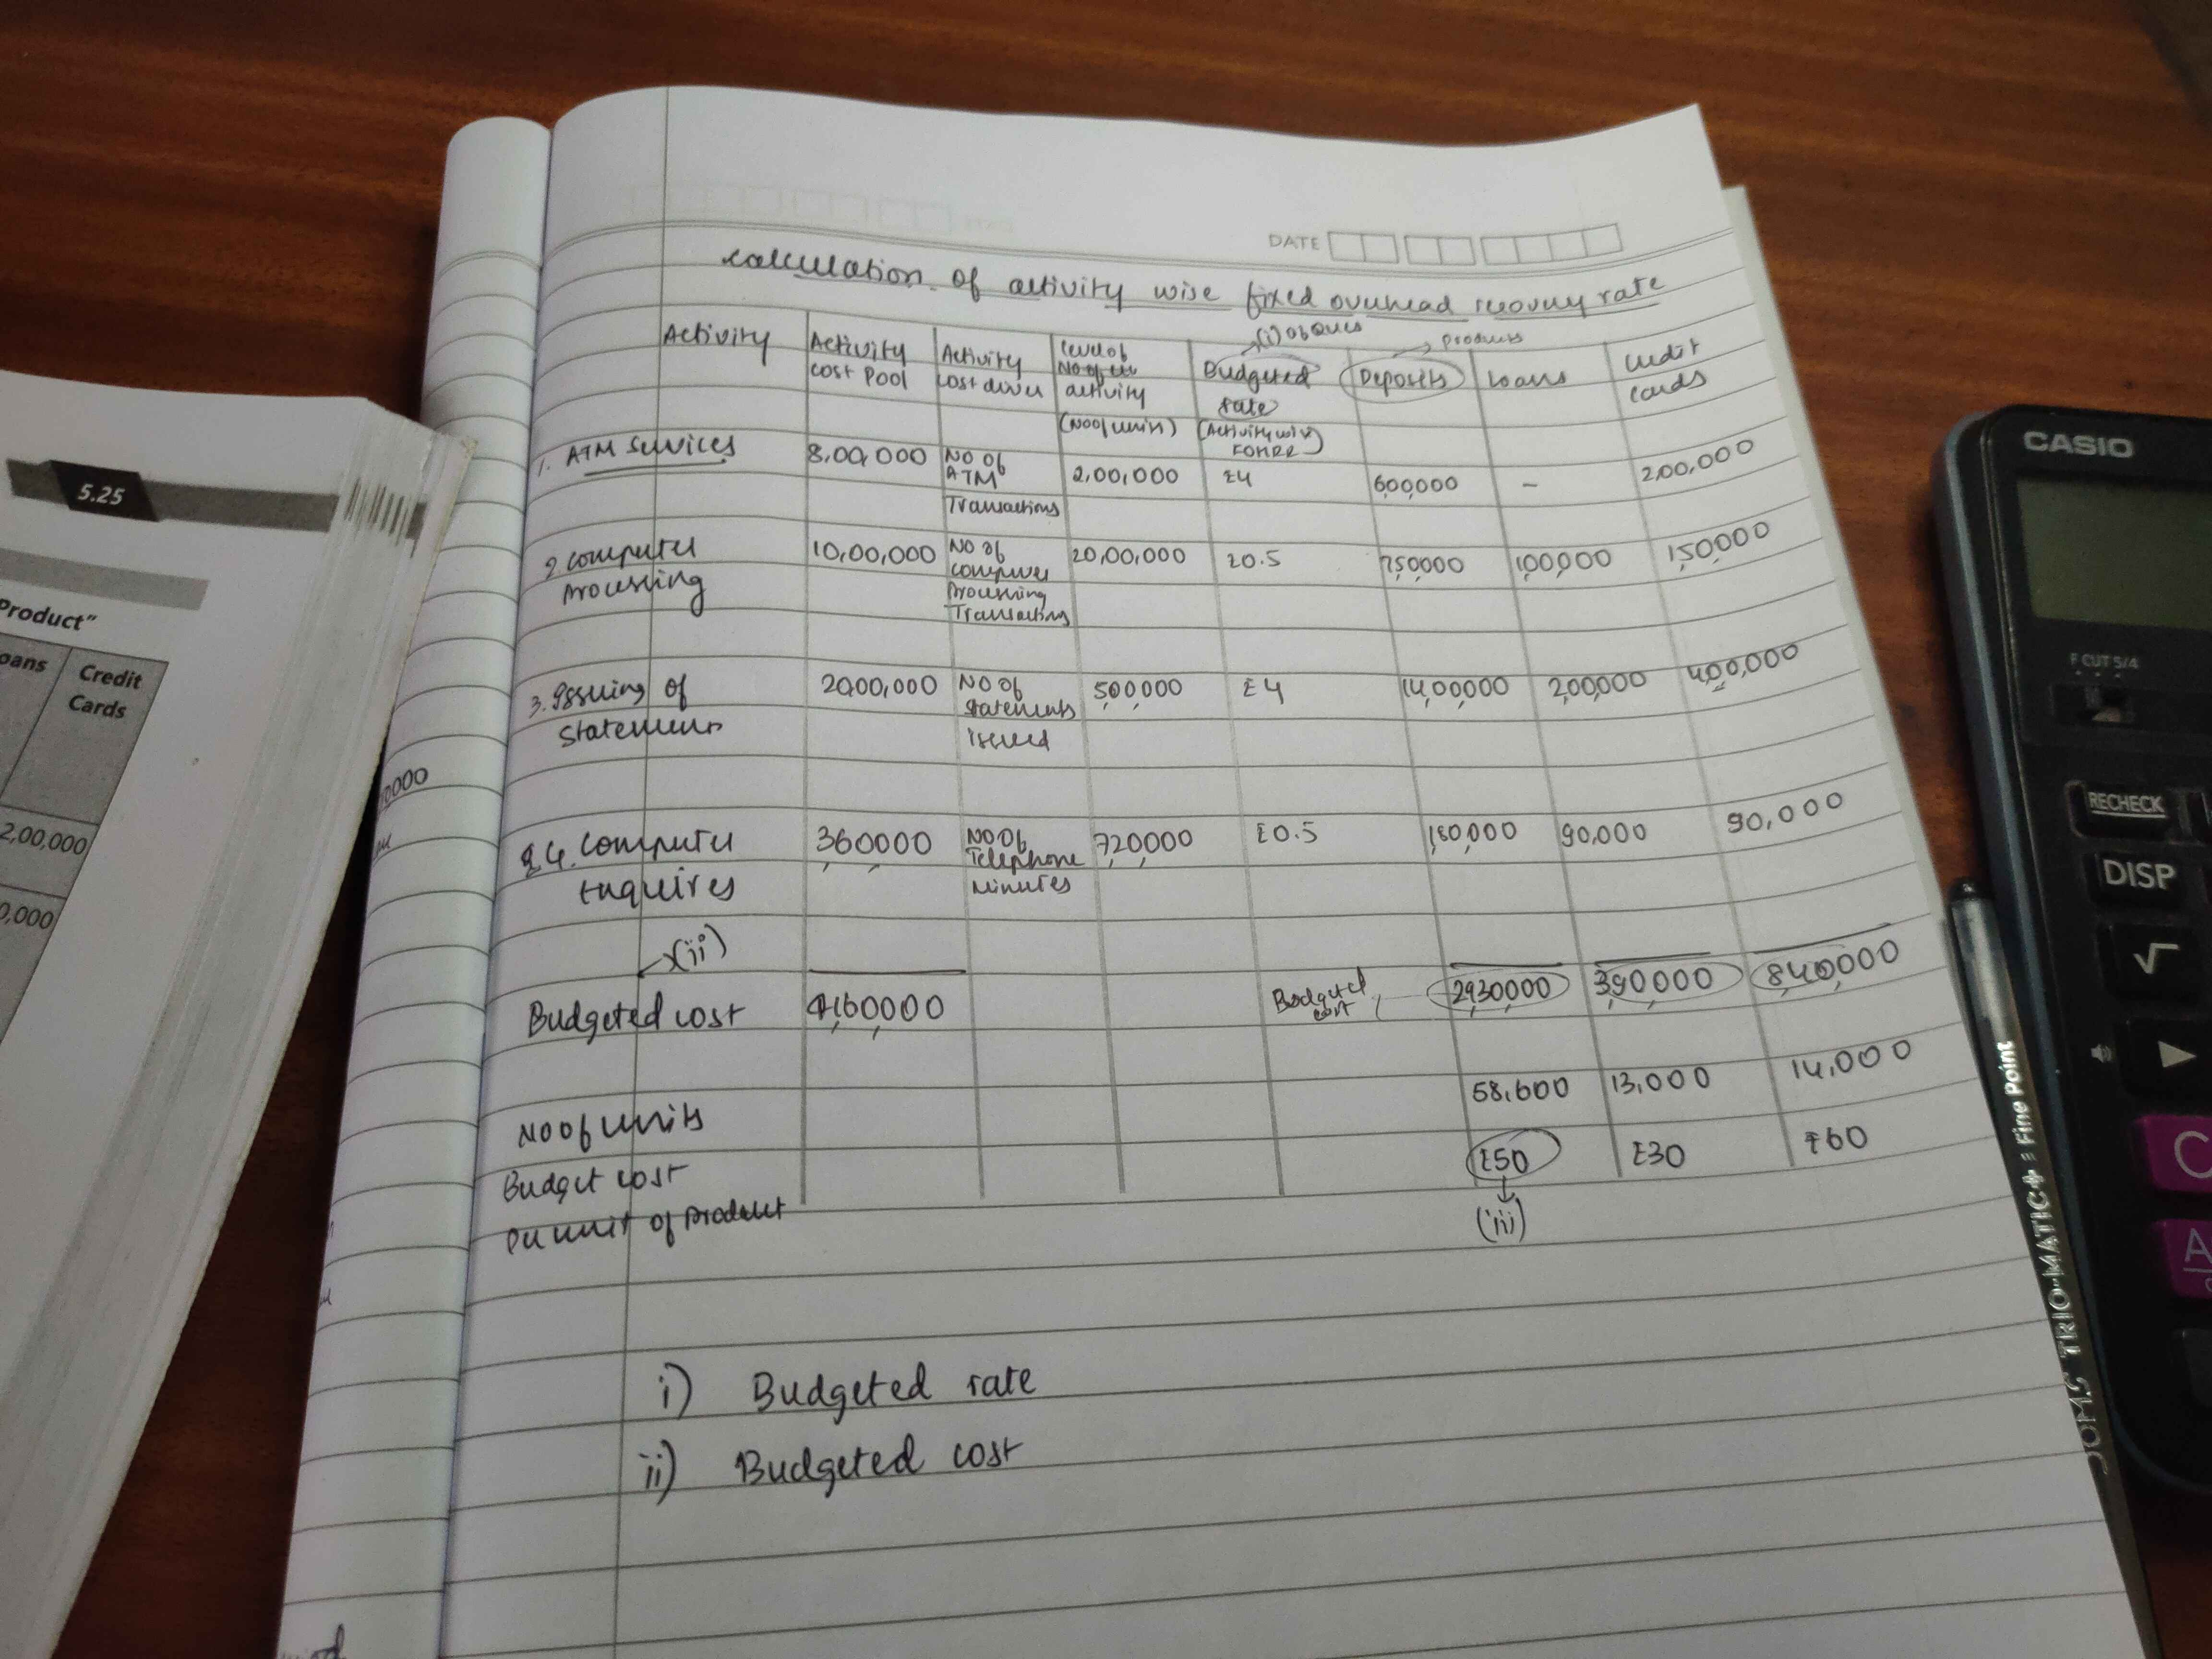 DATE
calculation of activity wise fixed overhead recovery rate
(i) of Ques
products
Activity | Activity cost Pool | Activity cost driver | Level of activity (No of units) | Budgeted rate (Activity wise FOHRR) | Deposits | Loans | Credit cards
1. ATM Services | 8,00,000 | No of ATM Transactions | 2,00,000 | ₹4 | 600,000 | - | 2,00,000
2. computer Processing | 10,00,000 | No of computer Processing Transactions | 20,00,000 | ₹0.5 | 750000 | 100,000 | 150000
3. Issuing of Statements | 2000,000 | No of statements issued | 500000 | ₹4 | 14,00000 | 200,000 | 400,000
4. Computer Enquires | 360000 | No of Telephone Minutes | 720,000 | ₹0.5 | 180,000 | 90,000 | 90,000
(ii)
Budgeted cost | 4160000 | Budgeted cost | 2930000 | 390000 | 840000
No of units | 58,600 | 13,000 | 14,000
Budget cost per unit of product | ₹50 | ₹30 | ₹60
(iii)
i) Budgeted rate
ii) Budgeted cost
5.25
Product”
oans
Credit
Cards
2,00,000
0,000
0000
CASIO
F CUT 5/4
RECHECK
DISP
√
C
A
DOMS TRIO-MATIC+ Fine Point